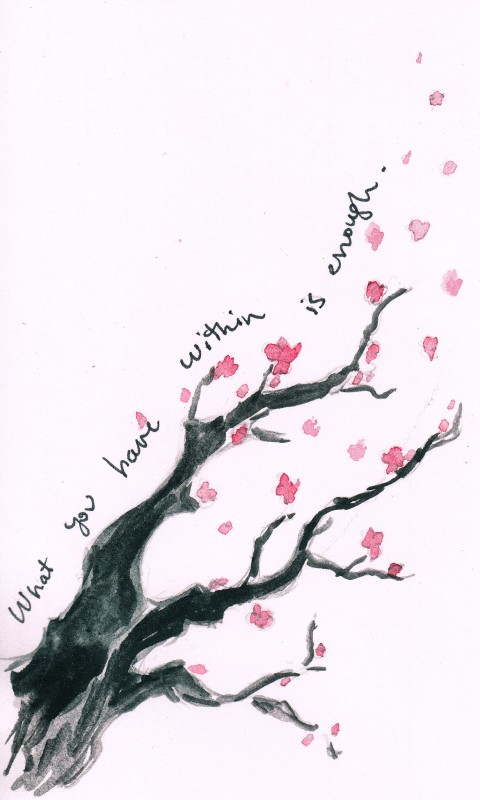 What you have within is enough.